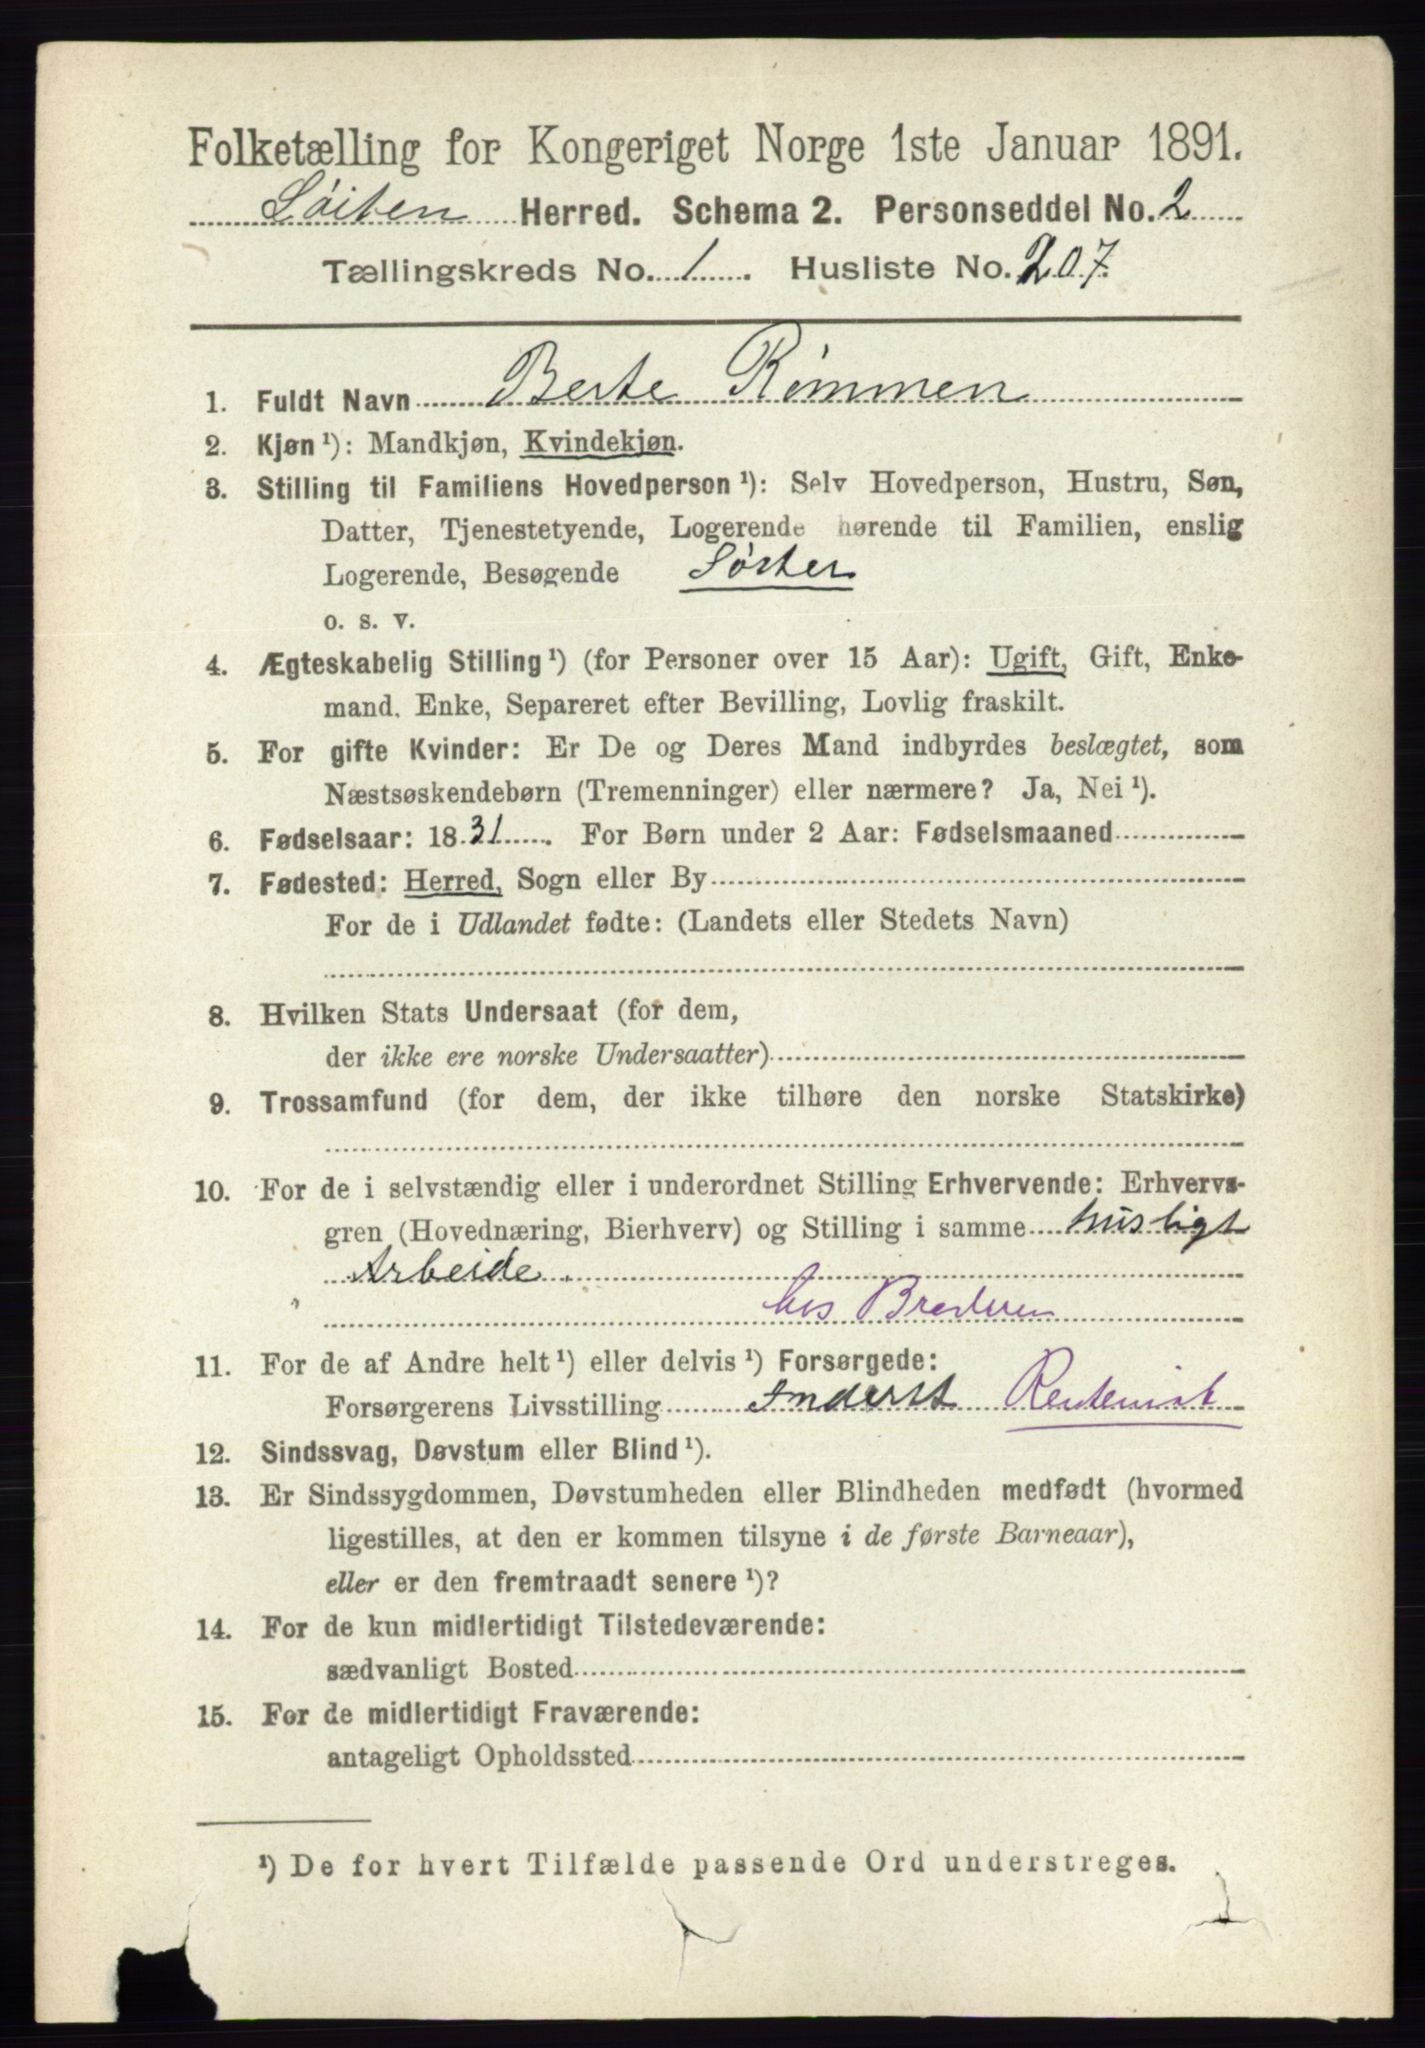 Folketælling for Kongeriget Norge 1ste Januar 1891.
Løiten Herred. Schema 2. Personseddel No. 2
Tællingskreds No. 1. Husliste No. 207.
1. Fuldt Navn Berte Rømmen
2. Kjøn ¹): Mandkjøn, Kvindekjøn.
3. Stilling til Familiens Hovedperson ¹): Selv Hovedperson, Hustru, Søn,
Datter, Tjenestetyende, Logerende hørende til Familien, enslig
Logerende, Besøgende Søster
o. s. v.
4. Ægteskabelig Stilling ¹) (for Personer over 15 Aar): Ugift, Gift, Enke-
mand, Enke, Separeret efter Bevilling, Lovlig fraskilt.
5. For gifte Kvinder: Er De og Deres Mand indbyrdes beslægtet, som
Næstsøskendebørn (Tremenninger) eller nærmere? Ja, Nei ¹).
6. Fødselsaar: 1831. For Børn under 2 Aar: Fødselsmaaned
7. Fødested: Herred, Sogn eller By
For de i Udlandet fødte: (Landets eller Stedets Navn)
8. Hvilken Stats Undersaat (for dem,
der ikke ere norske Undersaatter)
9. Trossamfund (for dem, der ikke tilhøre den norske Statskirke)
10. For de i selvstændig eller i underordnet Stilling Erhvervende: Erhvervs-
gren (Hovednæring, Bierhverv) og Stilling i samme husligt
Arbeide.
hos Broderen
11. For de af Andre helt ¹) eller delvis ¹) Forsørgede:
Forsørgerens Livsstilling Inderst Rentenist
12. Sindssvag, Døvstum eller Blind ¹).
13. Er Sindssygdommen, Døvstumheden eller Blindheden medfødt (hvormed
ligestilles, at den er kommen tilsyne i de første Barneaar),
eller er den fremtraadt senere ¹)?
14. For de kun midlertidigt Tilstedeværende:
sædvanligt Bosted
15. For de midlertidigt Fraværende:
antageligt Opholdssted
¹) De for hvert Tilfælde passende Ord understreges.